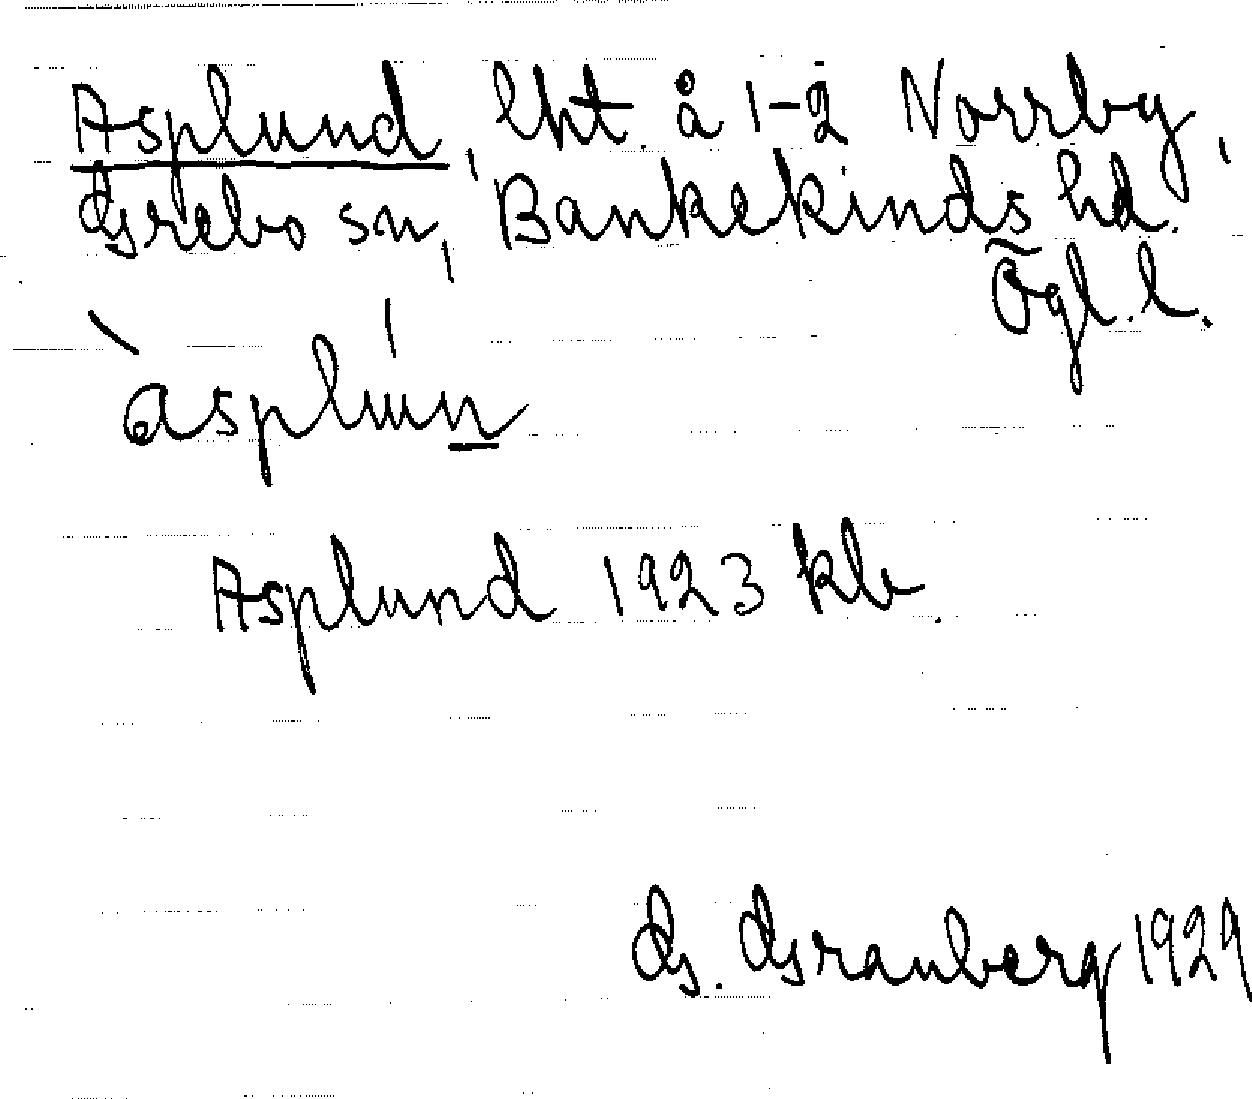 Asplund, lht. å 1-2 Norrby,
Grebo sn, Bankekinds hd.
Ögl. l.
àsplún
Asplund 1923 klb.
G. Granberg 1929